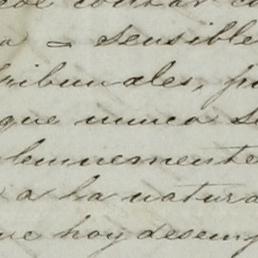 contar
a = sensible
tribunales, p
que nunca se
lemnemente
a la natura
ue hoy desem